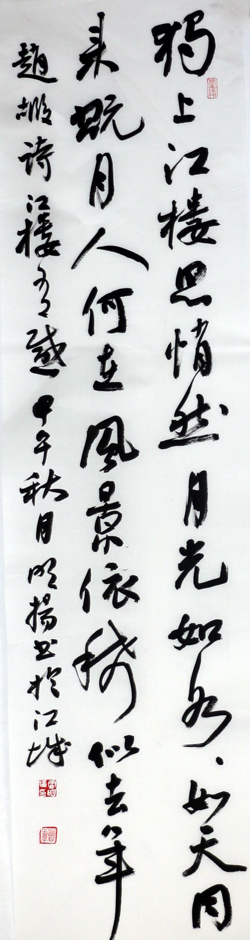 獨上江樓思悄然月光如水〻如天同
來翫月人何在風景依稀似去年
趙嘏詩江樓有感甲午秋月明揚書於江城